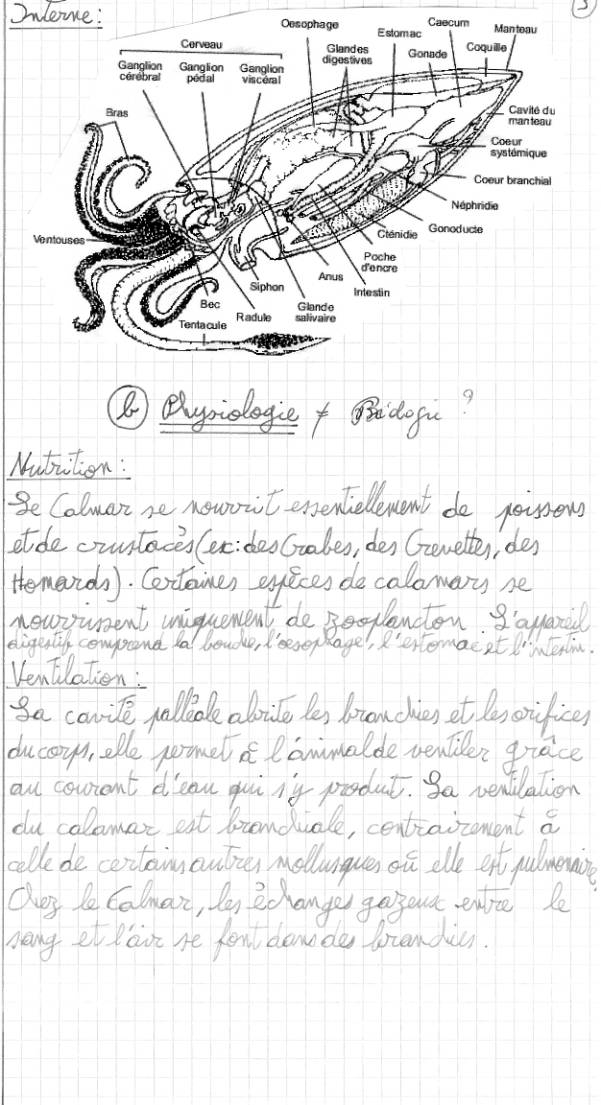 Interne :
3
Oesophage
Caecum
Manteau
Estomac
Cerveau
Glandes digestives
Gonade
Coquille
Ganglion cérébral
Ganglion pédal
Ganglion viscéral
Bras
Cavité du manteau
Coeur systémique
Coeur branchial
Néphridie
Gonoducte
Cténidie
Ventouses
Poche d'encre
Siphon
Anus
Intestin
Bec
Radule
Glande salivaire
Tentacule
b Physiologie ≠ ?
Nutrition :
Le Calmar se nourrit essentiellement de poissons
et de crustacés (ex: des Crabes, des Crevettes, des
Homards). Certaines espèces de calamars se
nourrissent uniquement de zooplancton L'appareil
digestif comprend la bouche, l'oesophage, l'estomac et l'intestin.
Ventilation :
La cavité palléale abrite les branchies et les orifices
du corps, elle permet à l'animal de ventiler grâce
au courant d'eau qui s'y produit. La ventilation
du calamar est branchiale, contrairement à
celle de certains autres mollusques où elle est pulmonaire.
Chez le Calmar, les échanges gazeux entre le
sang et l'air se font dans des branchies.